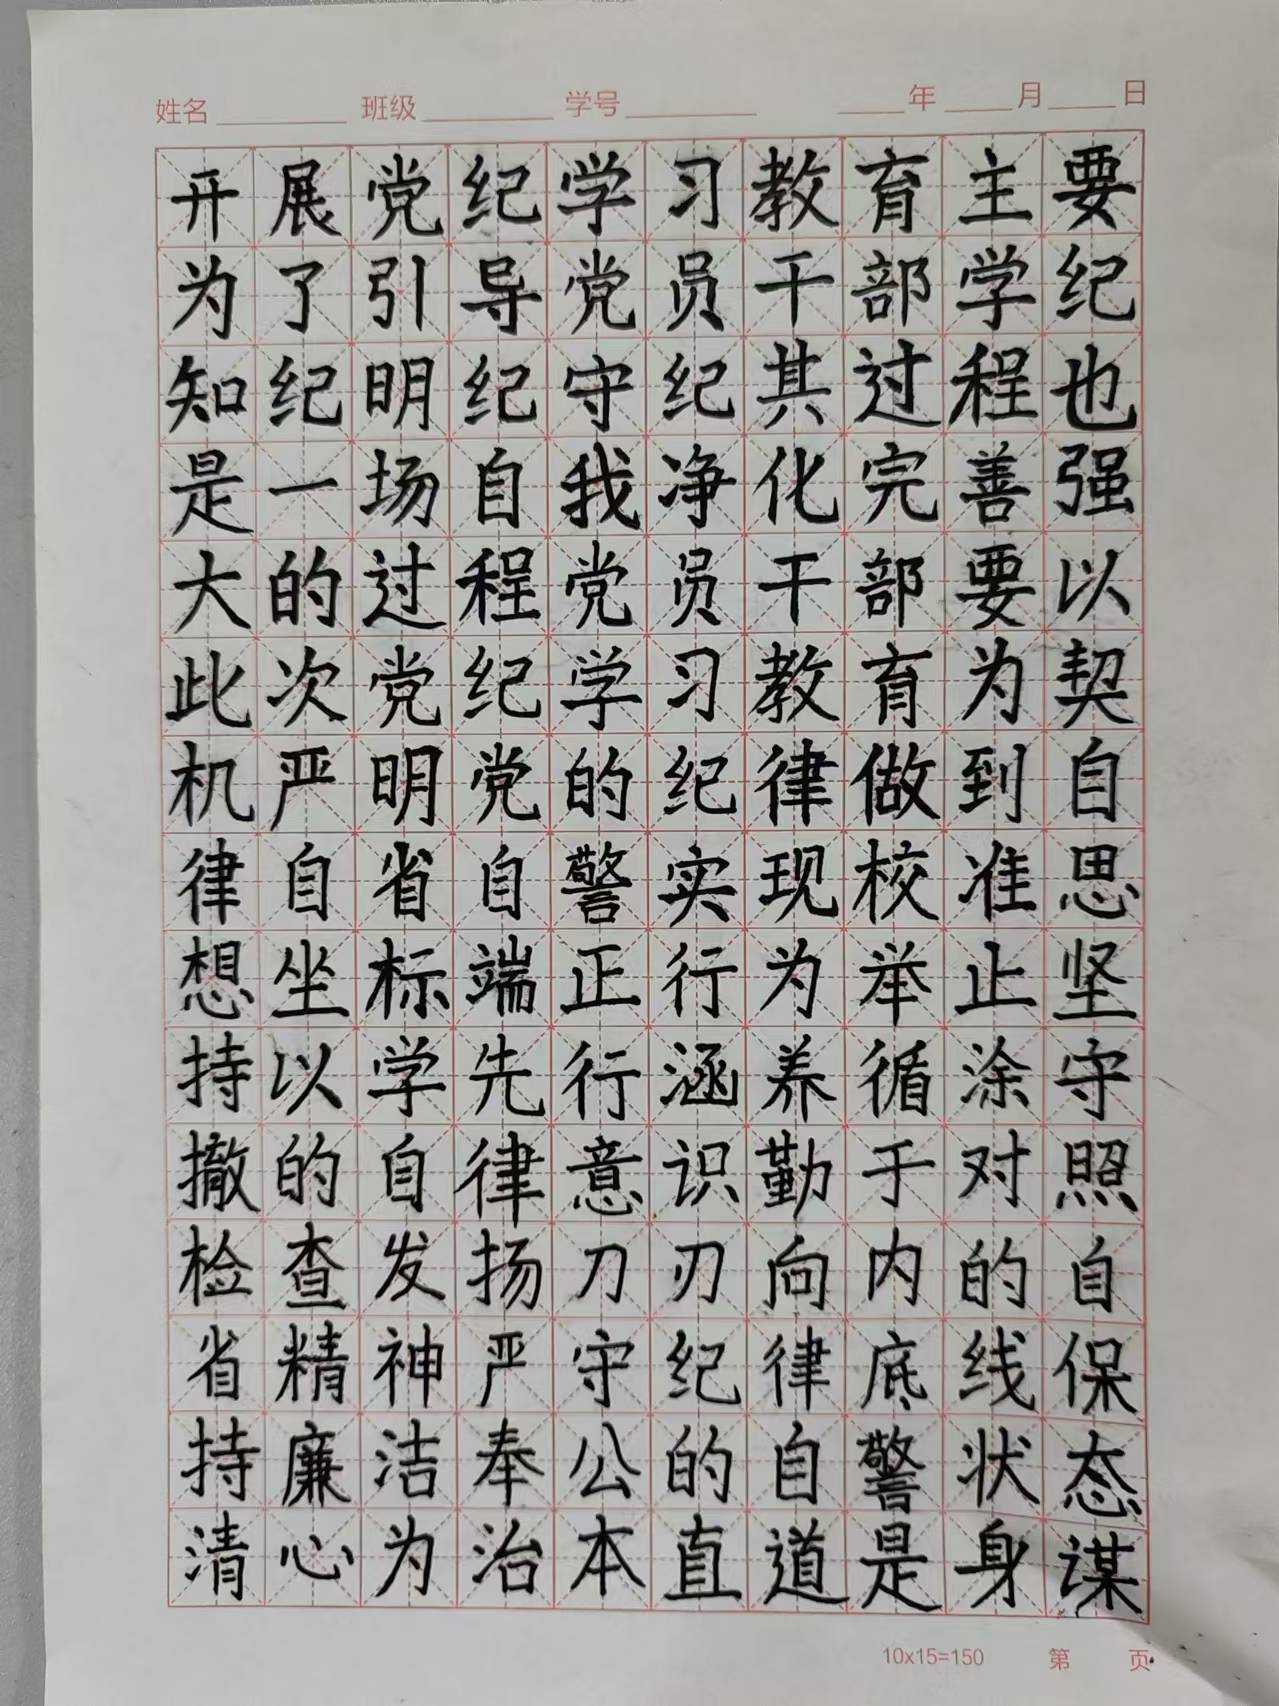 姓名 班级 学号 年 月 日
开展党纪学习教育主要
为了引导党员干部学纪
知纪明纪守纪其过程也
是一场自我净化完善强
大的过程党员干部要以
此次党纪学习教育为契
机严明党的纪律做到自
律自省自警实现校准思
想坐标端正行为举止坚
持以学先行涵养循涂守
撤的自律意识勤于对照
检查发扬刀刃向内的自
省精神严守纪律底线保
持廉洁奉公的自警状态
清心为治本直道是身谋
10x15=150 第 页